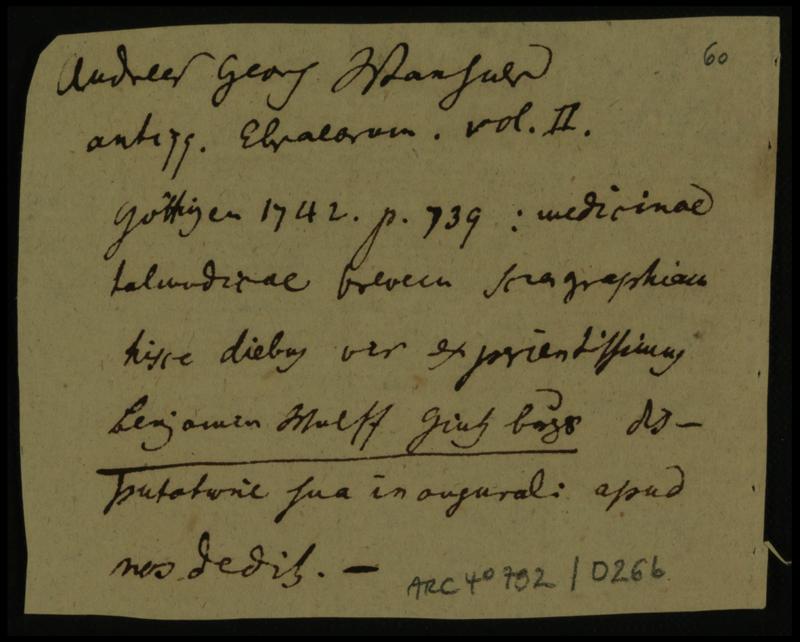 60
Andreas Georg Waehner
antiqq. Ebraeorum. vol. II.
Göttingen 1742. p. 739 : medicinae
talmudicae brevem sciagraphiam
hisce diebus vir experientissimus
Benjamin Wulff Gintzburger dis-
putatione sua inaugurali apud
nos dedit. —
ARC 4° 792 / D266